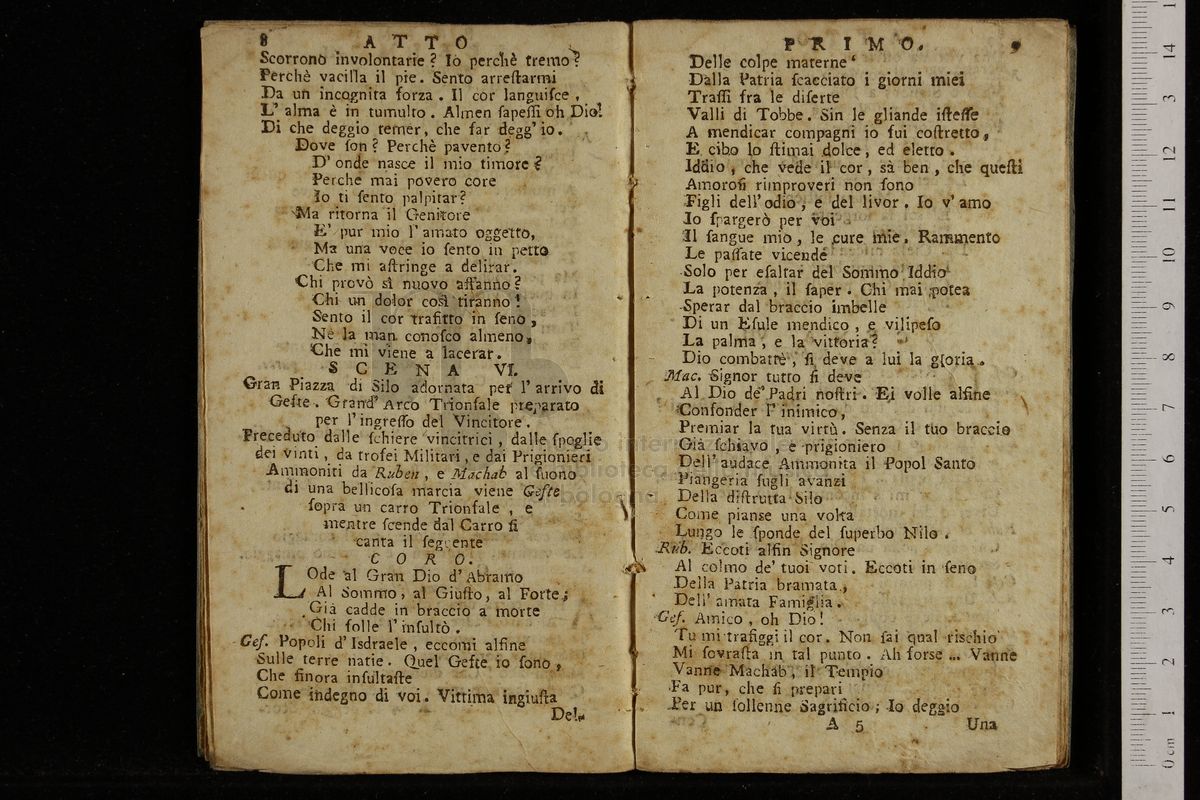 8 ATTO
Scorrono involontarie ? Io perchè tremo ?
Perchè vacilla il pie. Sento arreſtarmi
Da un incognita forza . Il cor languiſce ,
L' alma è in tumulto . Almen ſapeſſi oh Dio!
Di che deggio temer, che far degg' io.
Dove ſon ? Perchè pavento ?
D' onde nasce il mio timore ?
Perche mai povero core
Io ti ſento palpitar ?
Ma ritorna il Genitore
E' pur mio l' amato oggetto,
Ma una voce io ſento in petto
Che mi aſtringe a delirar.
Chi provò sì nuovo affanno ?
Chi un dolor così tiranno !
Sento il cor trafitto in ſeno ,
Nè la man conoſco almeno,
Che mi viene a lacerar.
SCENA VI.
Gran Piazza di Silo adornata per l' arrivo di
Gefte . Grand' Arco Trionfale preparato
per l' ingreſſo del Vincitore .
Preceduto dalle ſchiere vincitrici , dalle ſpoglie
dei vinti , da trofei Militari , e dai Prigionieri
Ammoniti da Ruben , e Machab al ſuono
di una bellicoſa marcia viene Gefte
ſopra un carro Trionfale , e
mentre ſcende dal Carro ſi
canta il ſeguente
CORO.
LOde al Gran Dio d' Abramo
Al Sommo, al Giuſto, al Forte;
Già cadde in braccio a morte
Chi folle l' inſultò .
Gef. Popoli d' Isdraele , eccomi alfine
Sulle terre natie. Quel Gefte io ſono ,
Che finora inſultaſte
Come indegno di voi. Vittima ingiuſta
Del-
PRIMO. 9
Delle colpe materne
Dalla Patria ſcacciato i giorni miei
Traſſi fra le diſerte
Valli di Tobbe . Sin le gliande iſteſſe
A mendicar compagni io fui coſtretto ,
E cibo lo ſtimai dolce, ed eletto .
Iddio , che vede il cor, sà ben , che queſti
Amoroſi rimproveri non ſono
Figli dell' odio , e del livor . Io v' amo
Io ſpargerò per voi
Il ſangue mio , le cure mie. Rammento
Le paſſate vicende
Solo per eſaltar del Sommo Iddio
La potenza , il ſaper . Chi mai potea
Sperar dal braccio imbelle
Di un Eſule mendico , e vilipeſo
La palma , e la vittoria ?
Dio combattè , ſi deve a lui la gloria .
Mac. Signor tutto ſi deve
Al Dio de' Padri noſtri . Ei volle alfine
Confonder l' inimico ,
Premiar la tua virtù. Senza il tuo braccio
Già ſchiavo , e prigioniero
Dell' audace Ammonita il Popol Santo
Piangeria ſugli avanzi
Della diſtrutta Silo
Come pianse una volta
Lungo le ſponde del ſuperbo Nilo .
Rub. Eccoti alfin Signore
Al colmo de' tuoi voti. Eccoti in ſeno
Della Patria bramata ,
Dell' amata Famiglia .
Gef. Amico , oh Dio !
Tu mi trafiggi il cor. Non ſai qual riſchio
Mi ſovraſta in tal punto . Ah forse ... Vanne
Vanne Machab , il Tempio
Fa pur, che ſi prepari
Per un ſollenne Sagrificio ; Io deggio
A 5 Una